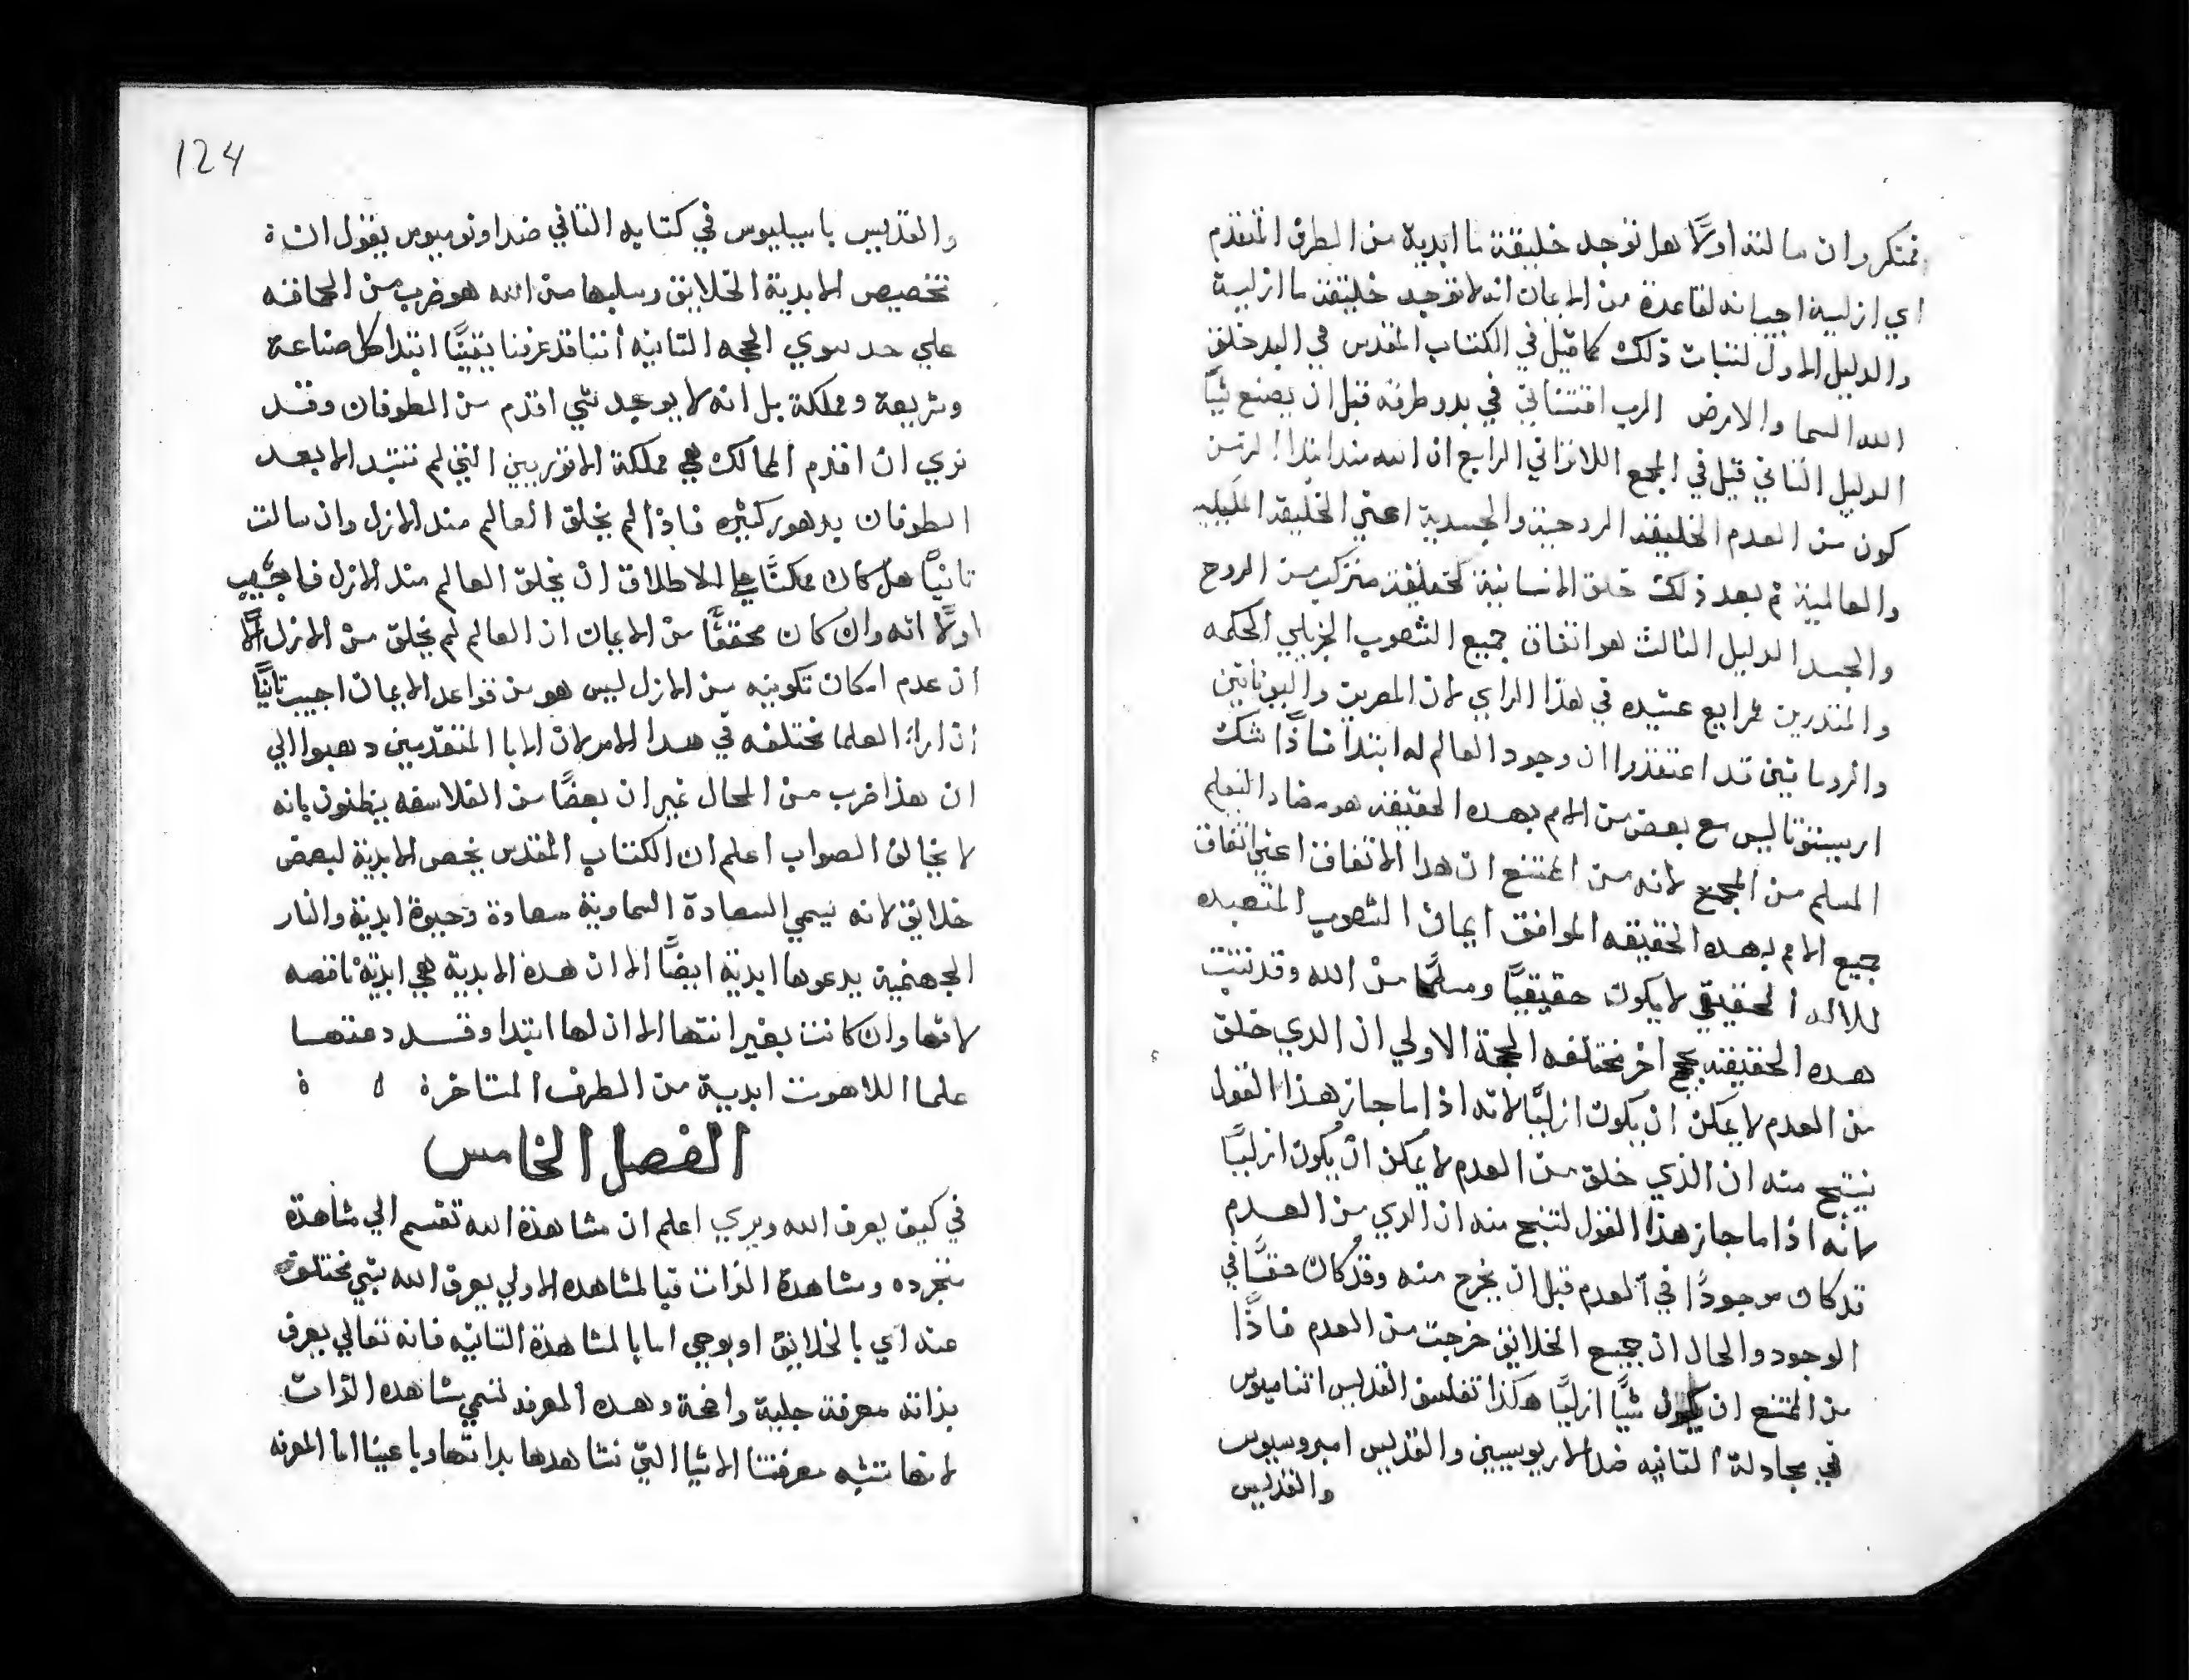 فمتكروان سالته اولًا هل توجد خليقة ما ابدية من الطرف المتقدم
اي ازلية اجيب انه لقاعدة من الايمان انه لا توجد خليقة ما ازلية
والدليل الاول لثبات ذلك كما قيل في الكتاب المقدس في البد خلق
الله السما والارض الرب اقتناني في بدو طرقه قبل ان يصنع شيًا
الدليل الثاني قيل في المجمع اللاتراني الرابع ان الله منذ ابتدا الزمن
كون من العدم الخليقة الروحية والجسدية اعني الخليقة الملكية
والعالمية ثم بعد ذلك خلق الانسانية كخليقة متركب من الروح
والجسد الدليل الثالث هو اتفاق جميع الشعوب الجزيلي الحكمه
والمنذرين شرايع عتيده في هذا الراي لان المصريين واليونانيين
والرومانيين قد اعتقدوا ان وجود العالم له ابتدا فاذًا شك
اريستوتاليس مع بعض من الامم بهده الحقيقه هو مضاد التعليم
المسلم من المجمع لانه من الممتنع ان هدا الاتفاق اعني اتفاق
جميع الامم بهده الحقيقه الموافق ايمان الشعوب المتعبده
للاله الحقيقي لا يكون حقيقيًا ومسلمًا من الله وقد تثبت
هده الحقيقه بحجج اخر مختلفه الحجة الاولي ان الدي خلق
من العدم لا يمكن ان يكون ازليًا لانه اذا ما جاز هذا القول
ينتج منه ان الذي خلق من العدم لا يمكن ان يكون ازليًا
لانه اذا ما جاز هذا القول لنتج منه ان الدي من العدم
قد كان موجودًا في العدم قبل ان يخرج منه وقد كان حقًا في
الوجود والحال ان جميع الخلايق خرجت من العدم فاذًا
من الممتنع ان يكون شيًا ازليًا هكذا تفلسف القديس اتناسيوس
في مجادلة التانيه ضد الاريوسيين والقديس امبروسيوس
والقديس
124
والقديس باسيليوس في كتابه الثاني ضد اونوميوس يقول ان
تخصيص الابدية الخلايق وسلبها من الله هو ضرب من الحماقه
علي حد سوي الحجه التانيه أننا قد عرفنا يقينًا ابتدا كل صناعة
وشريعة ومملكة بل انه لا يوجد شي اقدم من الطوفان وقد
نري ان اقدم الممالك هي مملكة الاتوريين التي لم تبتد الا بعد
الطوفان بدهور كثيره فاذًا لم يخلق العالم مند الازل وان سالت
تانيًا هل كان ممكنًا علي الاطلاق ان يخلق العالم مند الازل فاجيب
اولًا انه وان كان محققًا من الايمان ان العالم لم يخلق من الازل الا
ان عدم امكان تكوينه من الازل ليس هو من قواعد الايمان اجيب تانيًا
ان اراء العلما مختلفه في هدا الامر لان الابا المتقدمين دهبوا الي
ان هذا ضرب من المحال غير ان بعضًا من الفلاسفه يظنون بانه
لا يخالف الصواب اعلم ان الكتاب المقدس يخص الابدية لبعض
خلايق لانه يسمي السعادة السماوية سعادة وحيوة ابدية والنار
الجهنمية يدعوها ابدية ايضًا الا ان هده الابدية هي ابدية ناقصه
لانها وان كانت بغير انتها الا ان لها ابتدا وقد دعتها
علما اللاهوت ابدية من الطرف المتاخر ه ه
الفصل الخامس
في كيف يعرف الله ويري اعلم ان مشاهدة الله تقسم الي مشاهدة
متجرده ومشاهدة الذات فبالمشاهده الاولي يعرف الله بشي مختلف
عنه اي بالخلايق او بوحي اما بالمشاهدة التانيه فانه تعالي يعرف
بذاته معرفة جلية واضحة وهده المعرفه تسمي مشاهده الذات
لانها تشبه معرفتنا الاشيا التي نشاهدها بداتها وباعيننا اما المعرفه